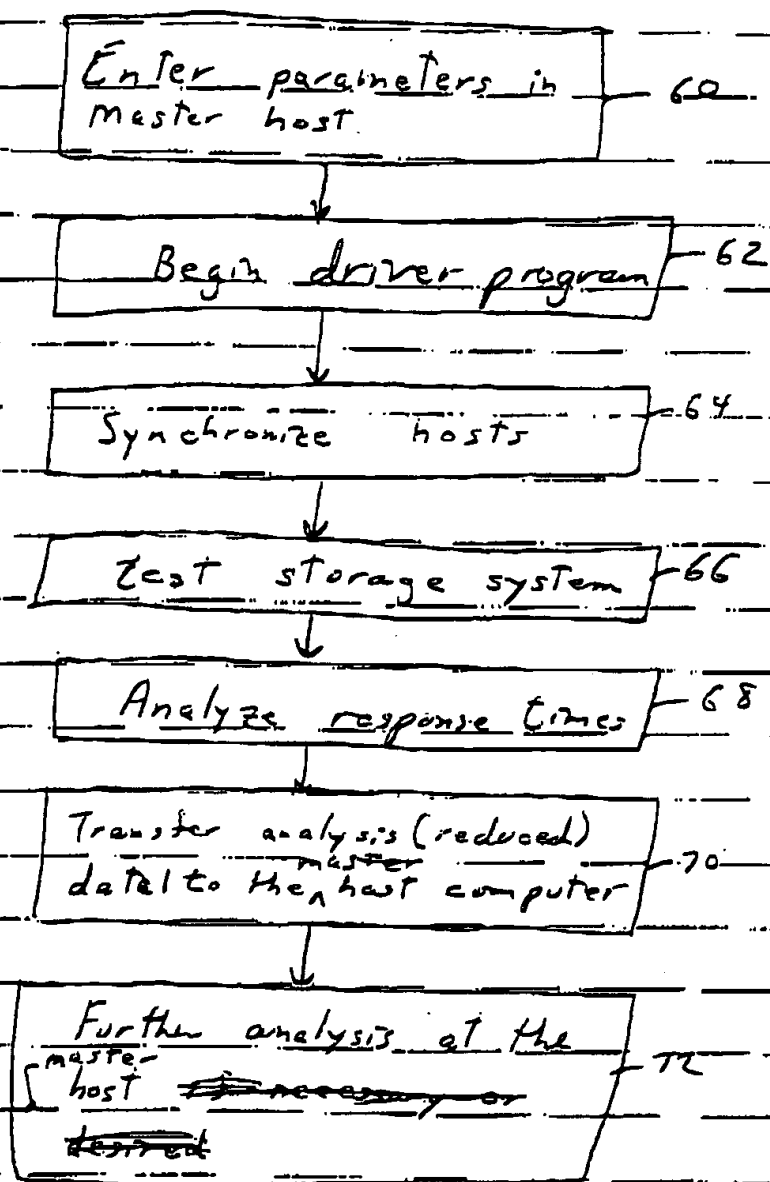 Enter parameters in 60
master host
Begin driver program 62
Synchronize hosts 64
Test storage system 66
Analyze response times 68
Transfer analysis (reduced)
master
data to the ^ host computer 70
Further analysis at the
master
host if necessary or 72
desired